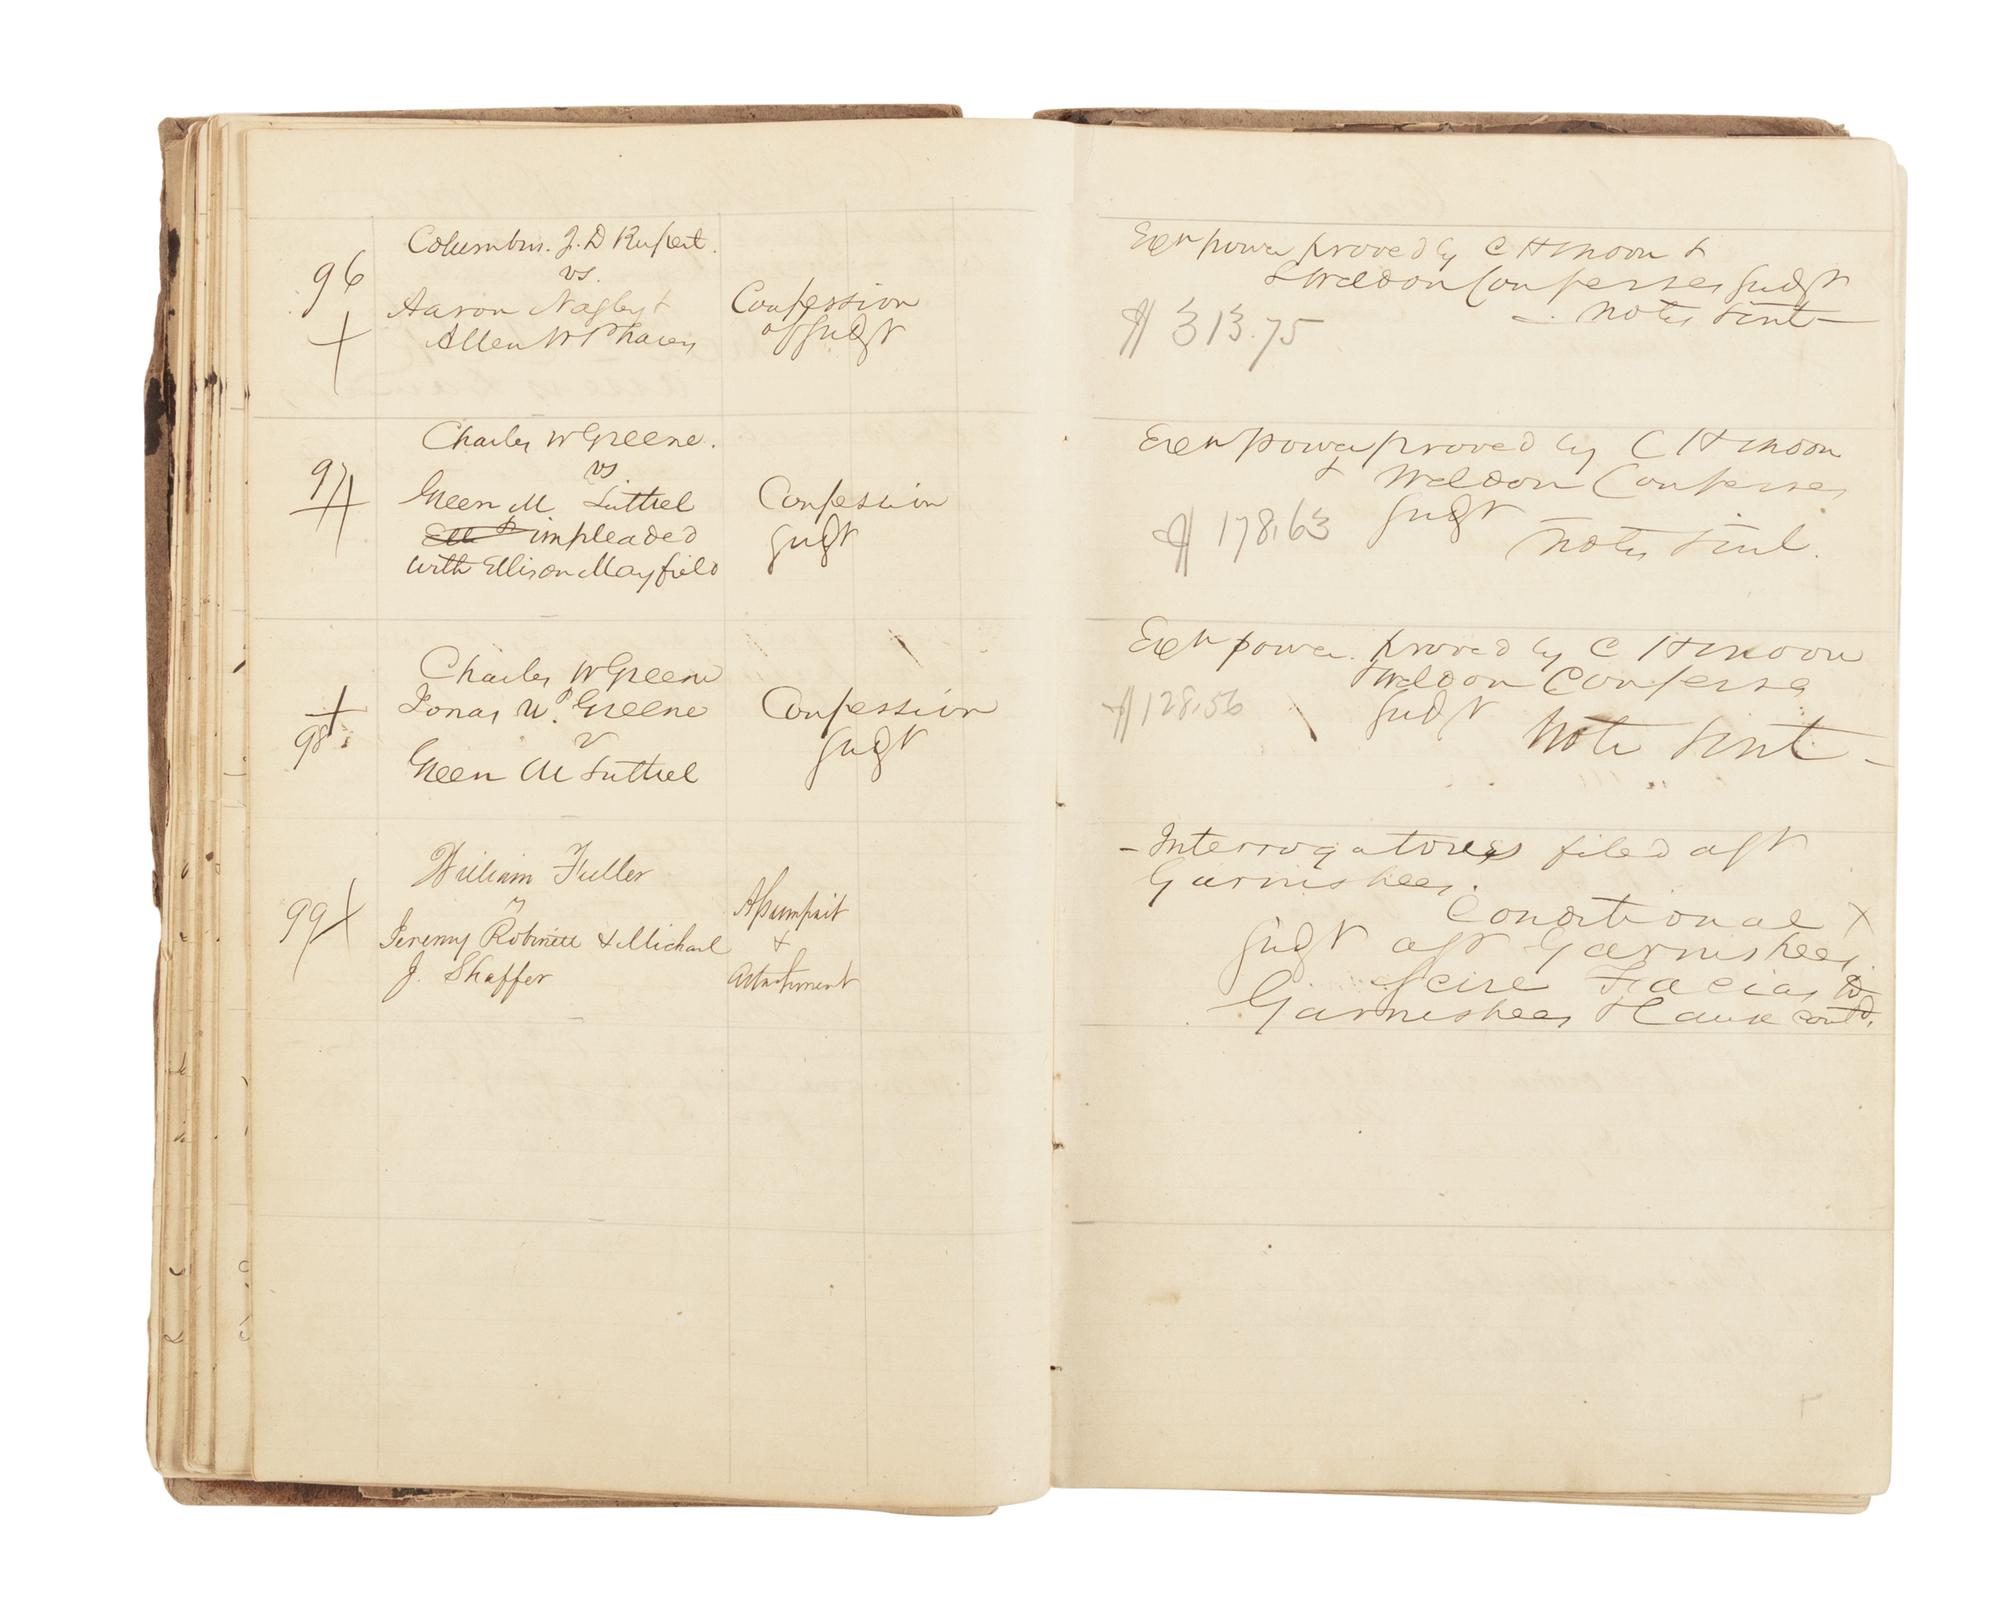 96
Columbus. J. D Rupert.
vs.
Aaron Nagby &
Allen W
Confession
of Judgt
97
Charles W Greene.
vs
Green M Luttrel
& impleaded
with Ellison Mayfield
Confession
Judgt
98
Charles W Greene
Jonas W. Greene
v
Green M Luttrel
Confession
Judgt
99
William Fuller
v
Jeremy Robinett & Michael
J. Shaffer
Assumpsit
&
Attachment
Exn power proved by C H Moon &
& Weldon Confesses Judgt
Notes
$313.75
Exn power proved by C H Moon
& Weldon Confesses
$178.63 Judgt
Notes
Exn power proved by C H Moon
& Weldon Confesses
$128.56 Judgt
Note
- Interrogatories filed agst
Garnishees.
Conditional
Judgt agst Garnishees.
Scire Facias to
Garnishees & Cause contd.